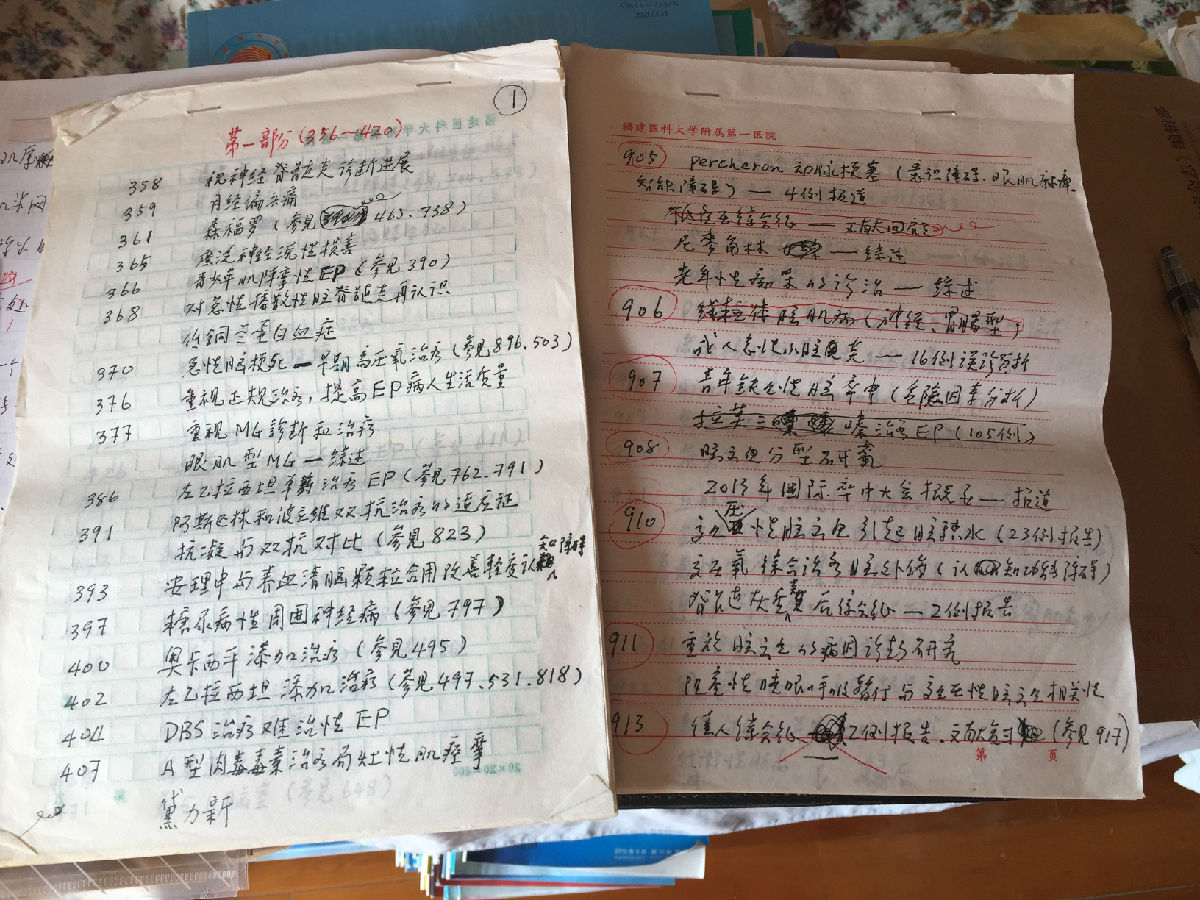 ①
第一部分(356—420)
358 视神经脊髓炎诊断进展
359 月经偏头痛
361 森福罗(参见 463.738)
365 理泛神经元性损害
366 青少年肌阵挛性EP(参见390)
368 对急性播散性脑脊髓炎再认识
低铜兰蛋白血症
370 急性脑梗死—早期高压氧治疗(参见896.503)
376 重视正规治疗,提高EP病人生活质量
377 重视MG诊断和治疗
眼肌型MG—综述
386 左乙拉西坦单药治疗EP(参见762.791)
391 阿斯匹林和波立维双抗治疗的适应证
抗凝与双抗对比(参见823)
393 安理申与养血清脑颗粒合用改善轻度认知障碍
397 糖尿病性周围神经病(参见797)
400 奥卡西平添加治疗(参见495)
402 左乙拉西坦添加治疗(参见497.531.818)
404 DBS治疗难治性EP
407 A型肉毒毒素治疗局灶性肌痉挛
黛力新
20×20=400
福建医科大学附属第一医院
905 percheron动脉梗塞(意识障碍.眼肌麻痹.
智能障碍)—4例报道
低颅压综合征—文献回顾
尼麦角林—综述
老年性痴呆的诊治—综述
906 线粒体脑肌病(神经、胃肠型)
成人急性小脑炎—16例误诊分析
907 青年缺血性脑卒中(危险因素分析)
拉莫三嗪治疗EP(105例)
908 脑出血分型研究
2013年国际卒中大会报告—报道
910 高压性脑出血引起脑积水(23例报告)
高压氧综合治疗脑外伤(认知功能障碍)
脊髓灰质炎后综合征—2例报告
911 重症脑出血的病因诊断研究
阻塞性睡眠呼吸暂停与高血压性脑出血相关性
913 佳人综合征 2例报告.文献复习(参见917)
第 页